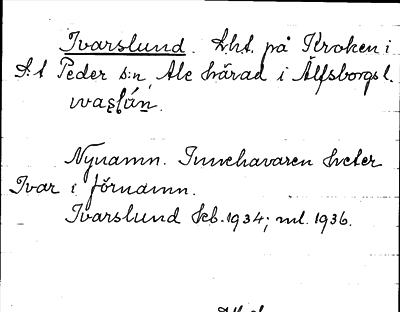 Ivarslund. Lht. på Kroken i
S:t Peder s:n, Ale härad i Älfsborgs l.
Nynamn. Innehavaren heter
Ivar i förnamn.
Ivarslund kb. 1934; ml. 1936.